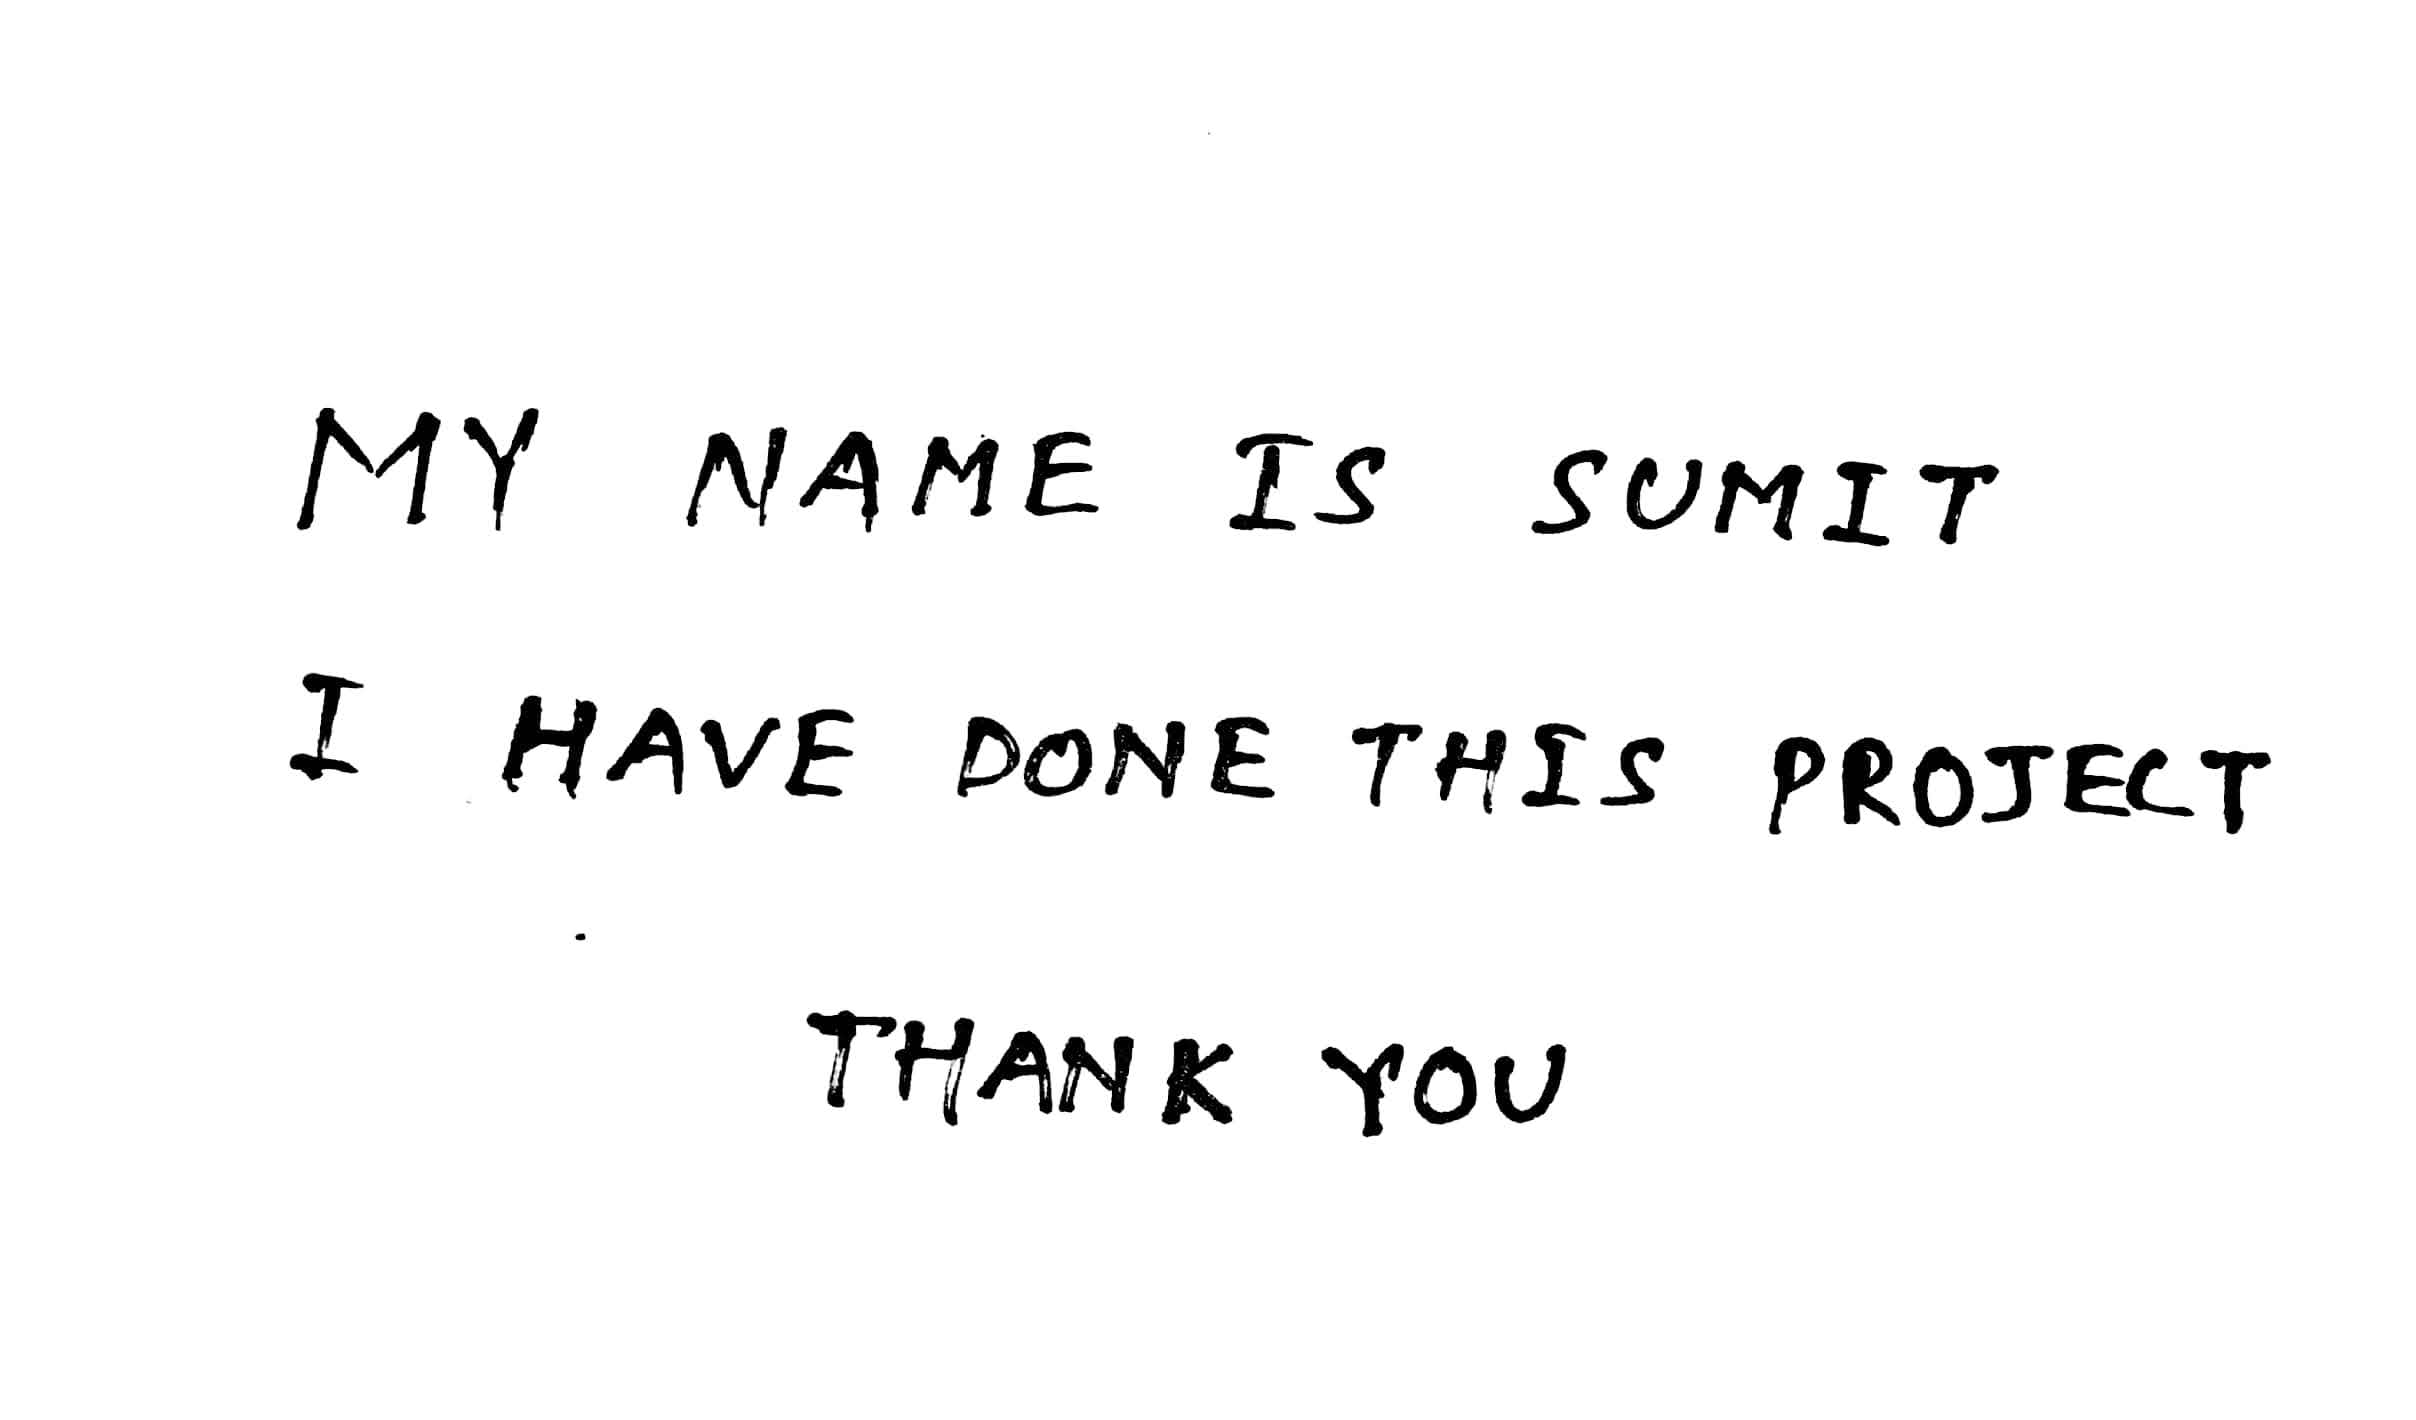 MY NAME IS SUMIT
I HAVE DONE THIS PROJECT
THANK YOU